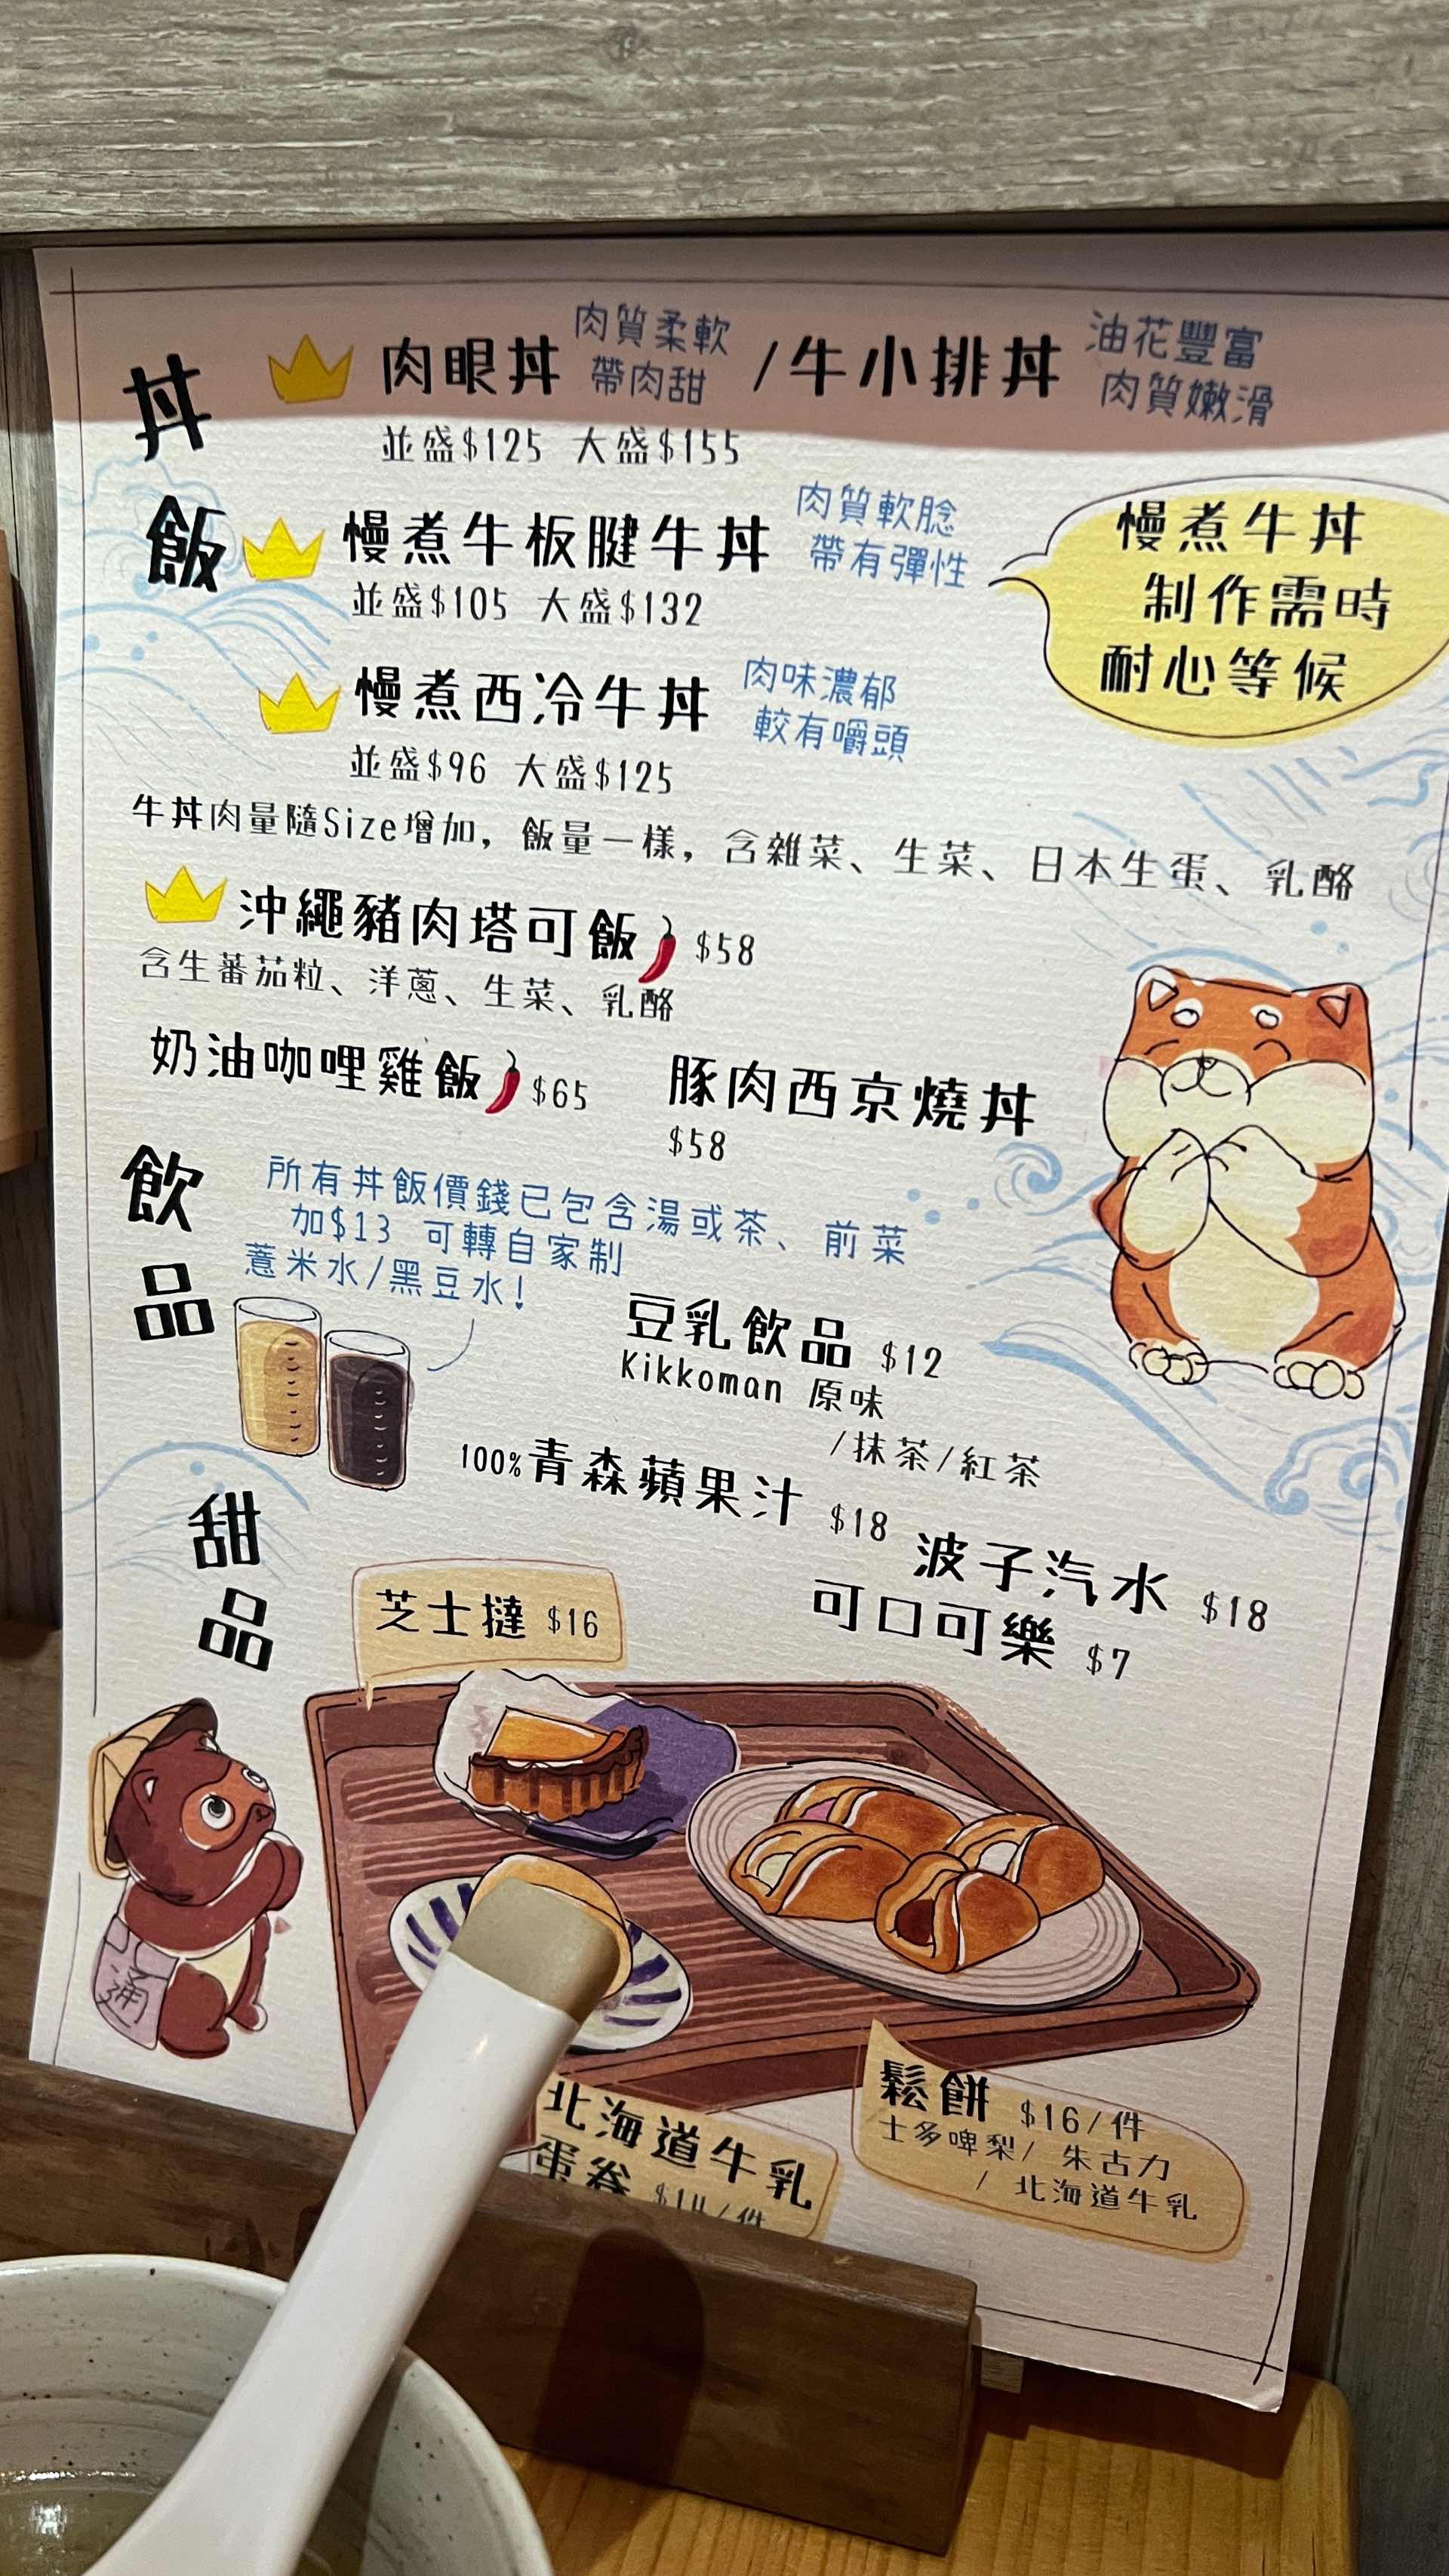 丼飯
肉眼丼 肉質柔軟 帶肉甜 /牛小排丼 油花豐富 肉質嫩滑
並盛$125 大盛$155
慢煮牛板腱牛丼 肉質軟腍 帶有彈性
並盛$105 大盛$132
慢煮牛丼
制作需時
耐心等候
慢煮西冷牛丼 肉味濃郁 較有嚼頭
並盛$96 大盛$125
牛丼肉量隨Size增加，飯量一樣，含雜菜、生菜、日本生蛋、乳酪
沖繩豬肉塔可飯 $58
含生蕃茄粒、洋蔥、生菜、乳酪
奶油咖哩雞飯 $65
豚肉西京燒丼
$58
飲品
所有丼飯價錢已包含湯或茶、前菜
加$13 可轉自家制
薏米水/黑豆水!
豆乳飲品 $12
Kikkoman 原味
/抹茶/紅茶
100%青森蘋果汁 $18
波子汽水 $18
可口可樂 $7
甜品
芝士撻 $16
通
北海道牛乳
蛋卷
鬆餅 $16/件
士多啤梨/ 朱古力
/ 北海道牛乳